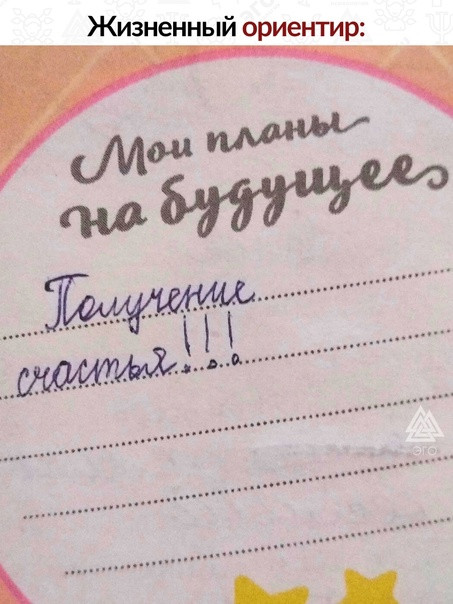 Жизненный ориентир:
Мои планы
на будущее
Получение
счастья!!!
arg